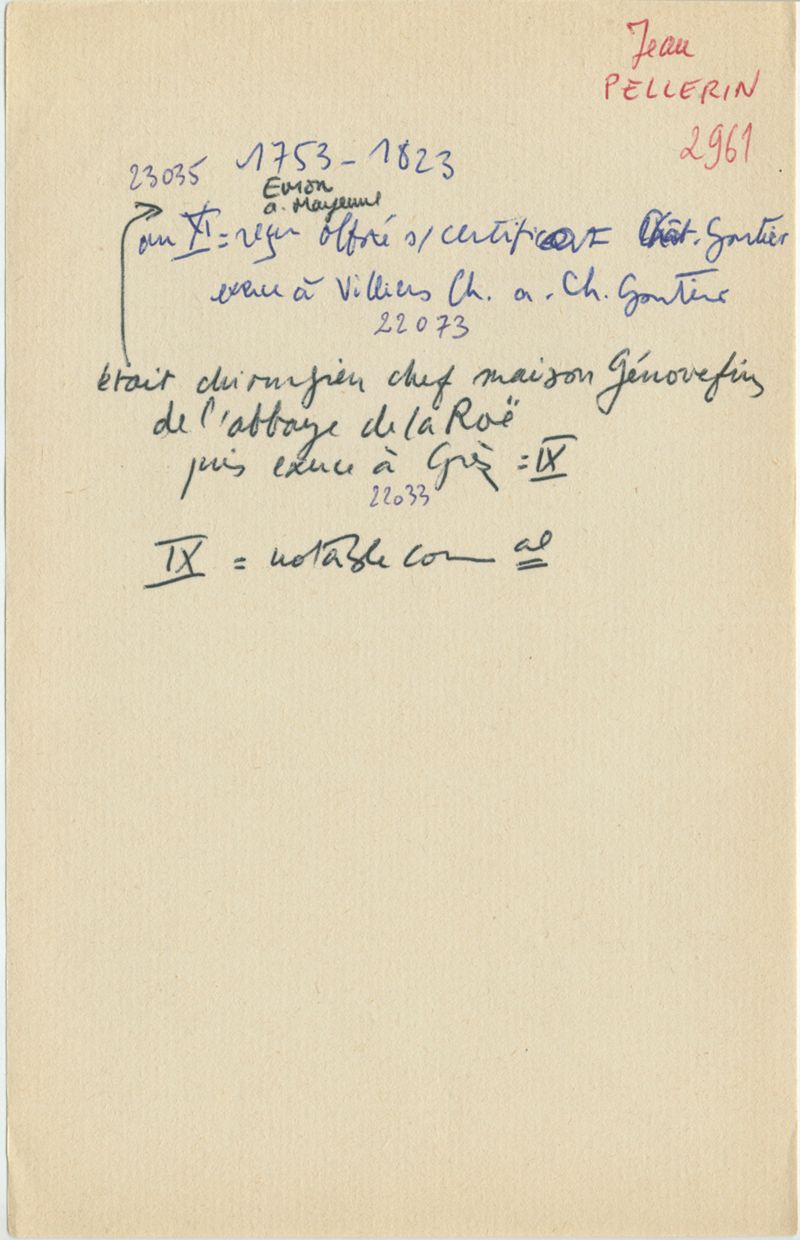 Jean
PELLERIN
2961
23035 1753 - 1823
Evron
a. Mayenne
an XI = reçu offsé s/ certificat Chât. Gontier
exerce à Villiers Ch. a. Ch. Gontier
22073
était chirurgien chef maison Génovefins
de l'abbaye de la Roë
puis exerce à Grèz = IX
22033
IX = notable com al